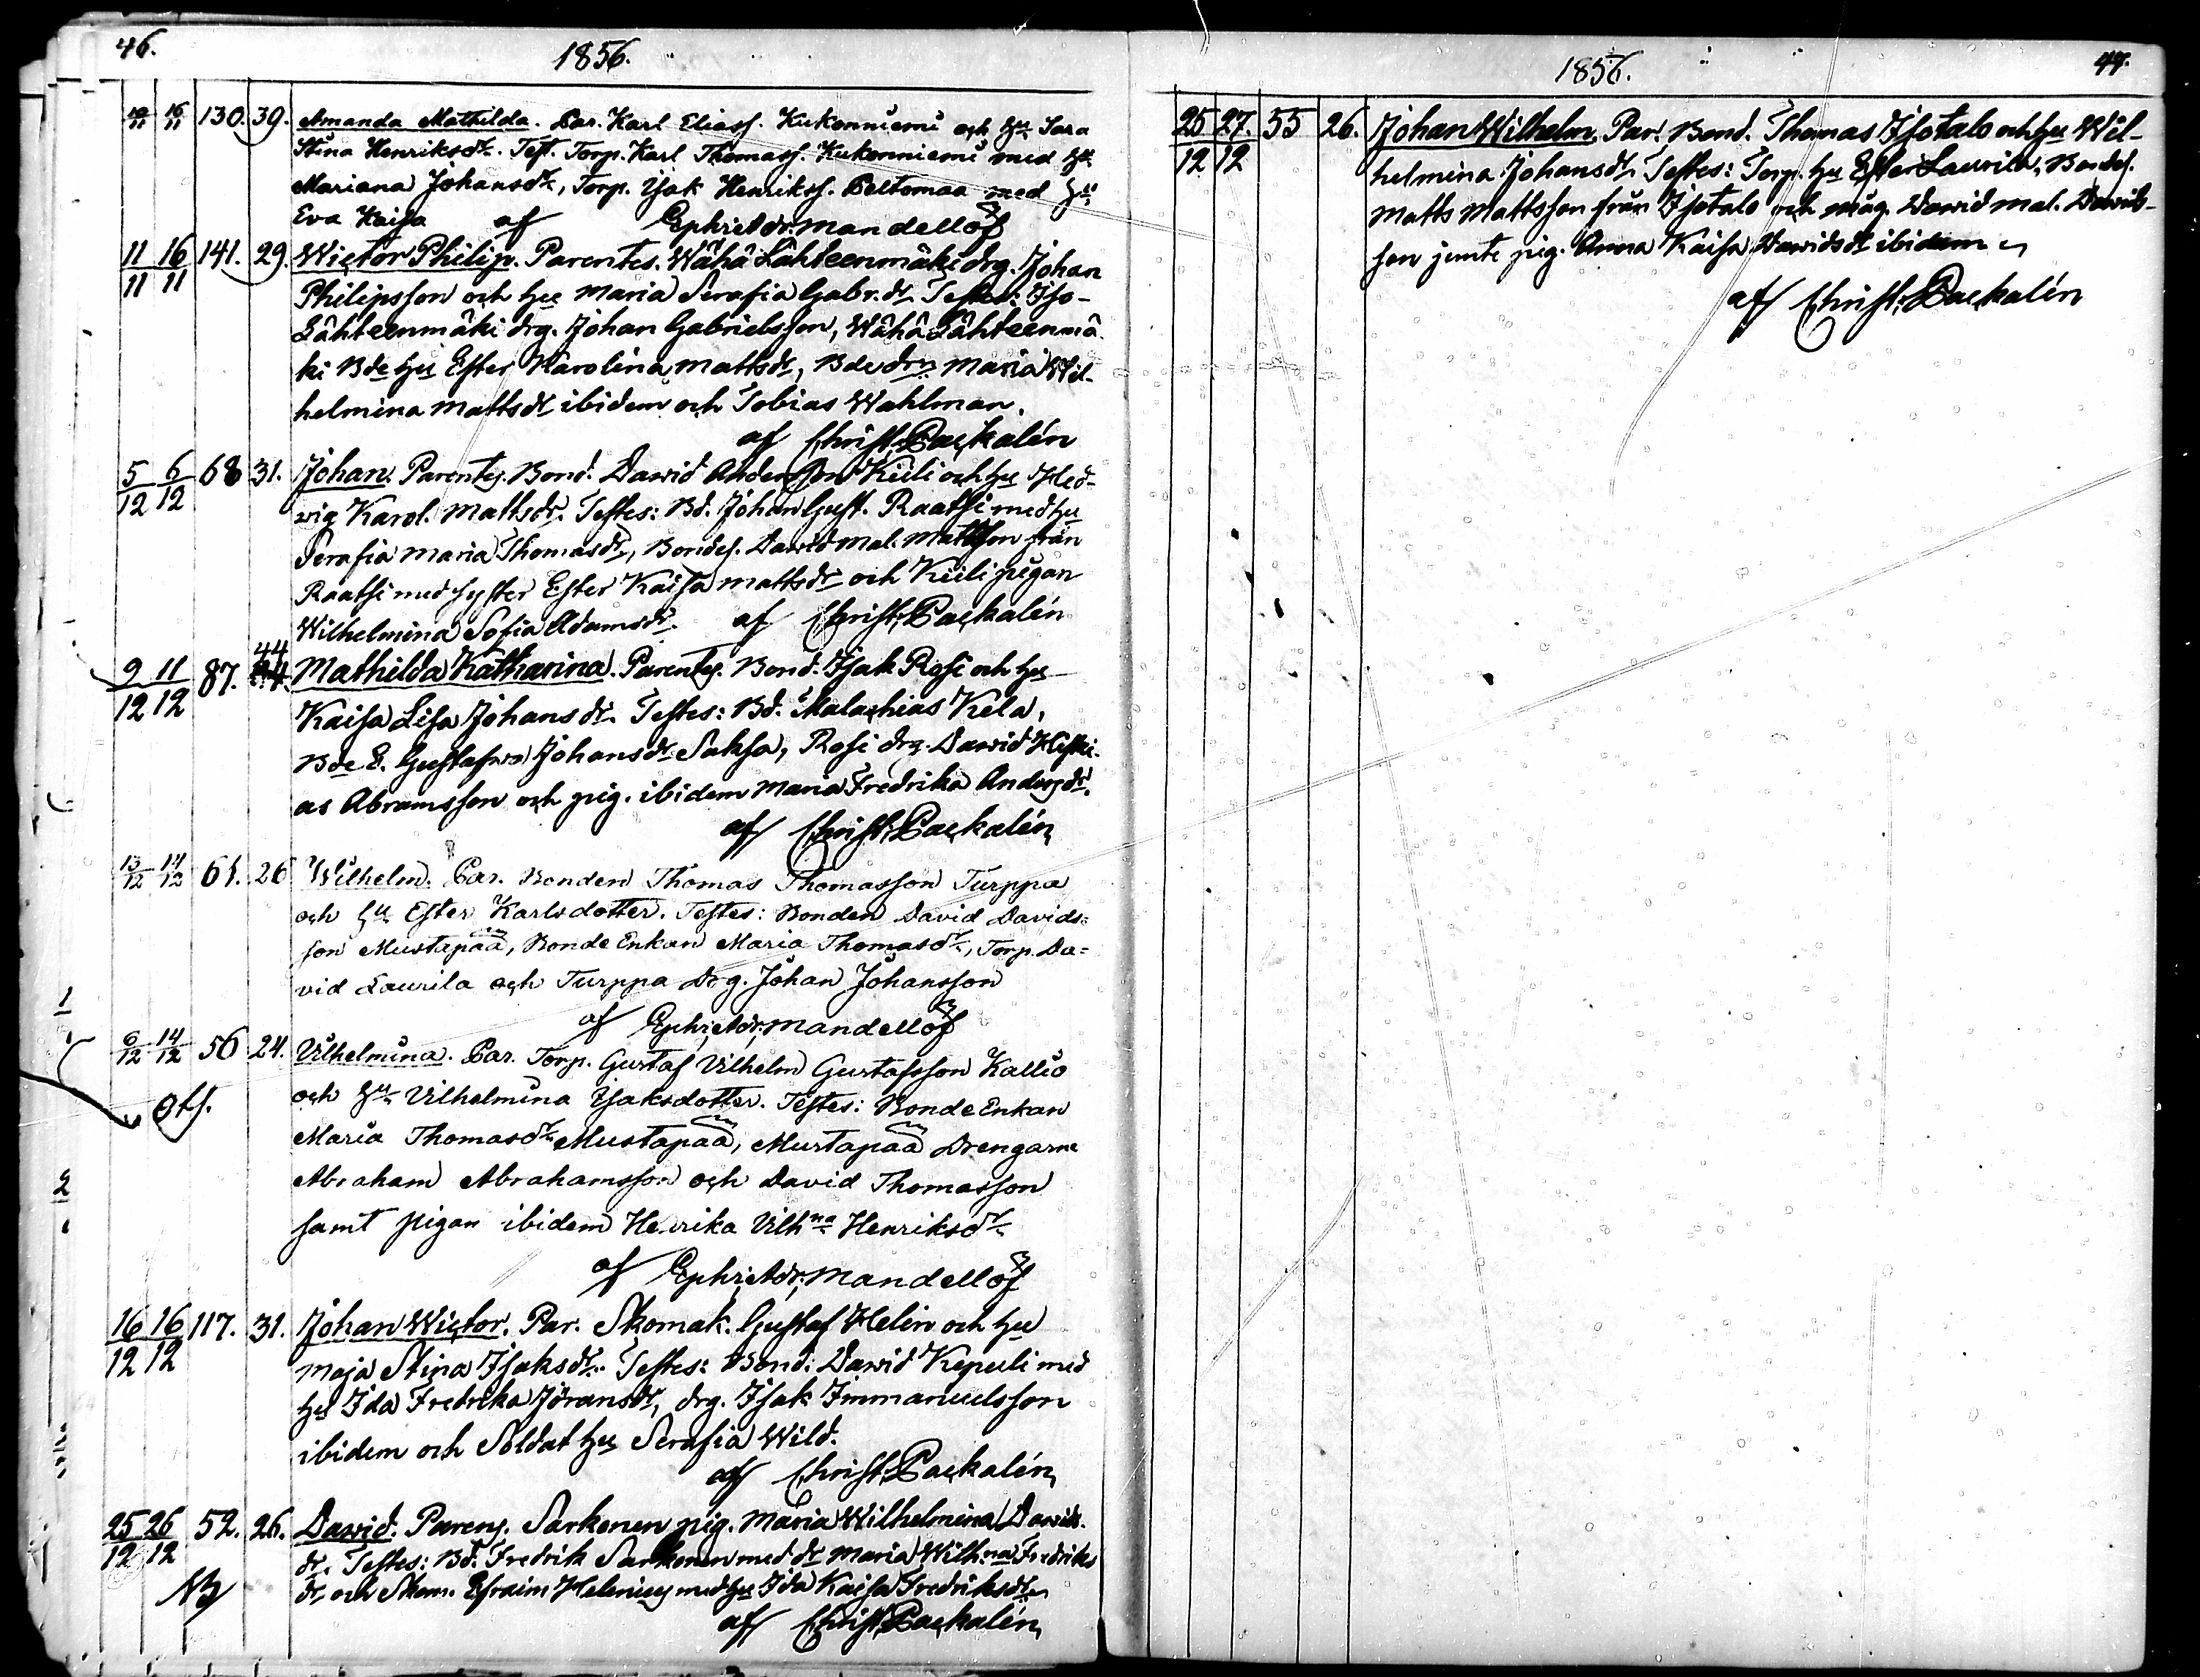 46.
1856.
10/11 16/11 130. 39. Amanda Mathilda. Par. Karl Eliass. Kukonniemi och hu Sara
Stina Henriksdr. Test. Torp. Karl Thomass. Kukonniemi med hu
Mariana Johansdr, Torp. Isak Henrikss. Peltomaa med hu
Eva Kaisa af Ephr: Adr: Mandellöf
11/11 16/11 141. 29. Wictor Philip. Parentes. Wähä Lähteenmäki drg. Johan
Philipsson och hu Maria Serafia Gabr. dr. Testes: Iso-
Lähteenmäki drg. Johan Gabrielsson, Wähä Lähteenmä
ki Bde hu Ester Karolina Mattsdr, Bde drn Maria Wil-
helmina Mattsdr ibidem och Tobias Wahlman.
af Christ. Packalén
5/12 6/12 68 31. Johan. Parentes. Bond. Dawid Andersson Kiili och hu Hed-
wig Karol. Mattsdr. Testes: Bd. Johan Gust. Raatsi med hu
Serafia Maria Thomasdr, Bondes. Dawid Mal. Mattsson från
Raatsi med syster Ester Kaisa Mattsdr och Kiili pigan
Wilhelmina Sofia Adamsdr. af Christ. Packalén
44
9/12 11/12 87. Mathilda Katharina. Parentes. Bond. Isak Rosi och hu
Kaisa Lisa Johansdr. Testes: Bd. Malachias Kela,
Bde E. Gustafwa Johansdr Saksa, Rosi drg. Dawid Hiski-
as Abramsson och pig. ibidem Maria Fredrika Andersdr.
af Christ. Packalén
13/12 14/12 61. 26 Wilhelm. Par. Bonden Thomas Thomasson Turppa
och hu Ester Karlsdotter. Testes: Bonden David Davids=
son Mustapää, Bonde Enkan Maria Thomasdr, Torp. Da=
vid Laurila och Turppa Drg. Johan Johansson
af Ephr: Adr: Mandellöf
6/12 14/12 56 24. Vilhelmina. Par. Torp. Gustaf Vilhelm Gustafsson Kallio
och hu Vilhelmina Isaksdotter. Testes: Bonde Enkan
Maria Thomasdr Mustapää, Mustapää Drengarne
Abraham Abrahamsson och David Thomasson
samt pigan ibidem Henrika Vilhna Henriksdr
af Ephr: Adr: Mandellöf
16/12 16/12 117. 31. Johan Wictor. Par. Skomak. Gustaf Helin och hu
Maja Stina Isaksdr. Testes: Bond. Dawid Kepuli med
hu Ida Fredrika Jöransdr, drg. Isak Immanuelsson
ibidem och Soldat hu Serafia Wild.
af Christ. Packalén
25/12 26/12 52. 26. Dawid. Parens. Sarkonen pig. Maria Wilhelmina Dawids-
dr. Testes: Bd. Fredrik Sarkonen med dr Maria Wilh:na Fredriks
dr, och Skom. Efraim Helenius med hu Ida Kaisa Fredriksdr
NB
af Christ. Packalén
1856.
47.
25/12 27/12 55 26. Johan Wilhelm. Par. Bond. Thomas Isotalo och hu Wil-
helmina Johansdr. Testes: Torp. hu Ester Laurila, Bondes.
Matts Mattsson från Isotalo och måg Dawid Mal. Dawids-
son jemte pig. Anna Kaisa Dawidsdr ibidem
af Christ. Packalén